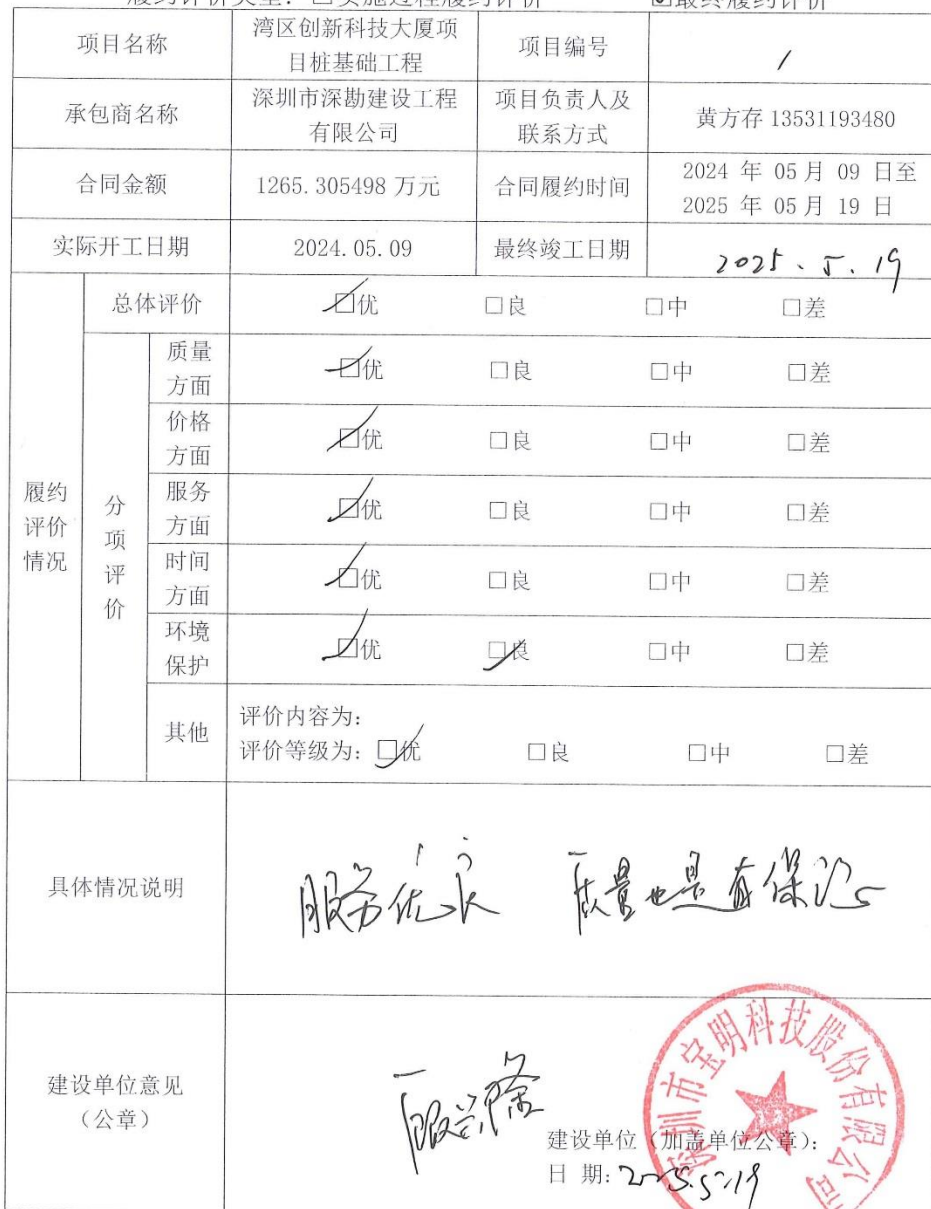 履约评价类型：□实施过程履约评价 ☑最终履约评价
项目名称 湾区创新科技大厦项目桩基础工程 项目编号 /
承包商名称 深圳市深勘建设工程有限公司 项目负责人及联系方式 黄方存 13531193480
合同金额 1265.305498 万元 合同履约时间 2024 年 05 月 09 日至
2025 年 05 月 19 日
实际开工日期 2024.05.09 最终竣工日期 2025.5.19
履约评价情况
总体评价 ☑优 □良 □中 □差
分项评价
质量方面 ☑优 □良 □中 □差
价格方面 ☑优 □良 □中 □差
服务方面 ☑优 □良 □中 □差
时间方面 ☑优 □良 □中 □差
环境保护 ☑优 ☑良 □中 □差
其他 评价内容为：
评价等级为：☑优 □良 □中 □差
具体情况说明 服务优良 质量也是有保证
建设单位意见
（公章）
建设单位（加盖单位公章）：
日 期：2025.5.19
深圳市宝明科技股份有限公司